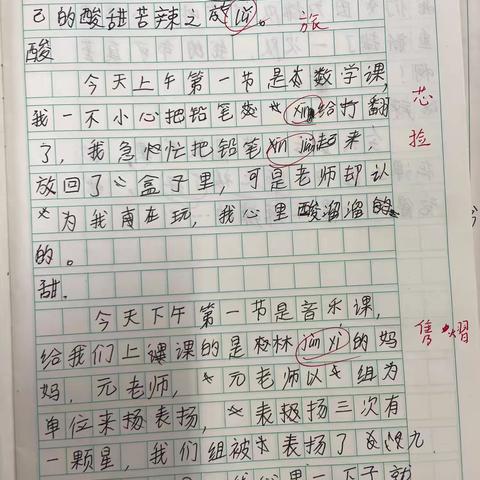 己的酸甜苦辣之旅 lǚ。 旅
酸
今天上午第一节是数学课,
我一不小心把铅笔 xin 给打翻 芯
了,我急忙把铅笔 xin jiǎn 起来, 捡
放回了盒子里,可是老师却认
为我在玩,我心里酸溜溜的
的。
甜.
今天下午第一节是音乐课,
给我们上课的是林 的妈
妈,元老师,元老师以组为
单位来扬表扬,表扬三次有
一颗星,我们组被表扬了 九
一下子就